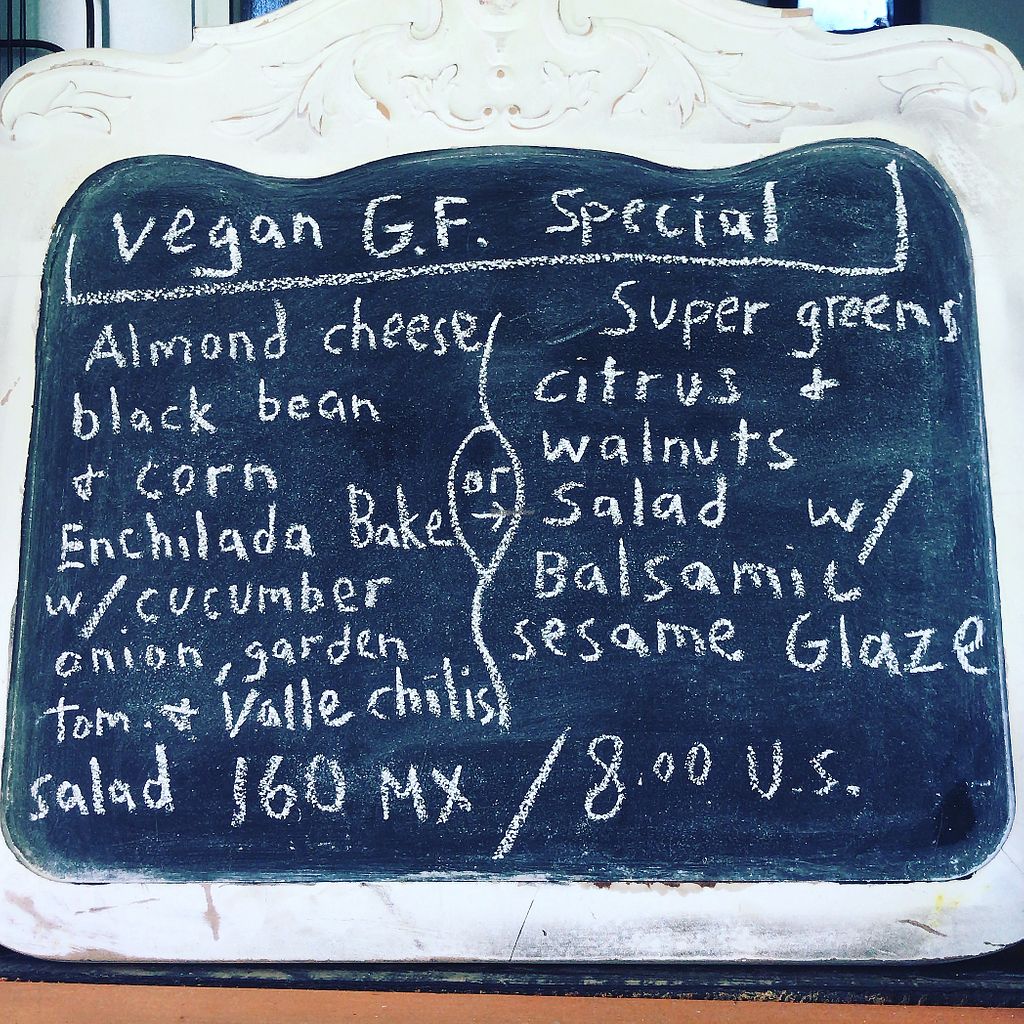 vegan G.F. Special
Almond cheese
black bean
& corn
Enchilada Bake
w/ cucumber
onion, garden
tom. & Valle chilis
salad 160 MX / 8.00 U.S.
or
→
Super greens
citrus &
walnuts
salad w/
Balsamic
sesame Glaze